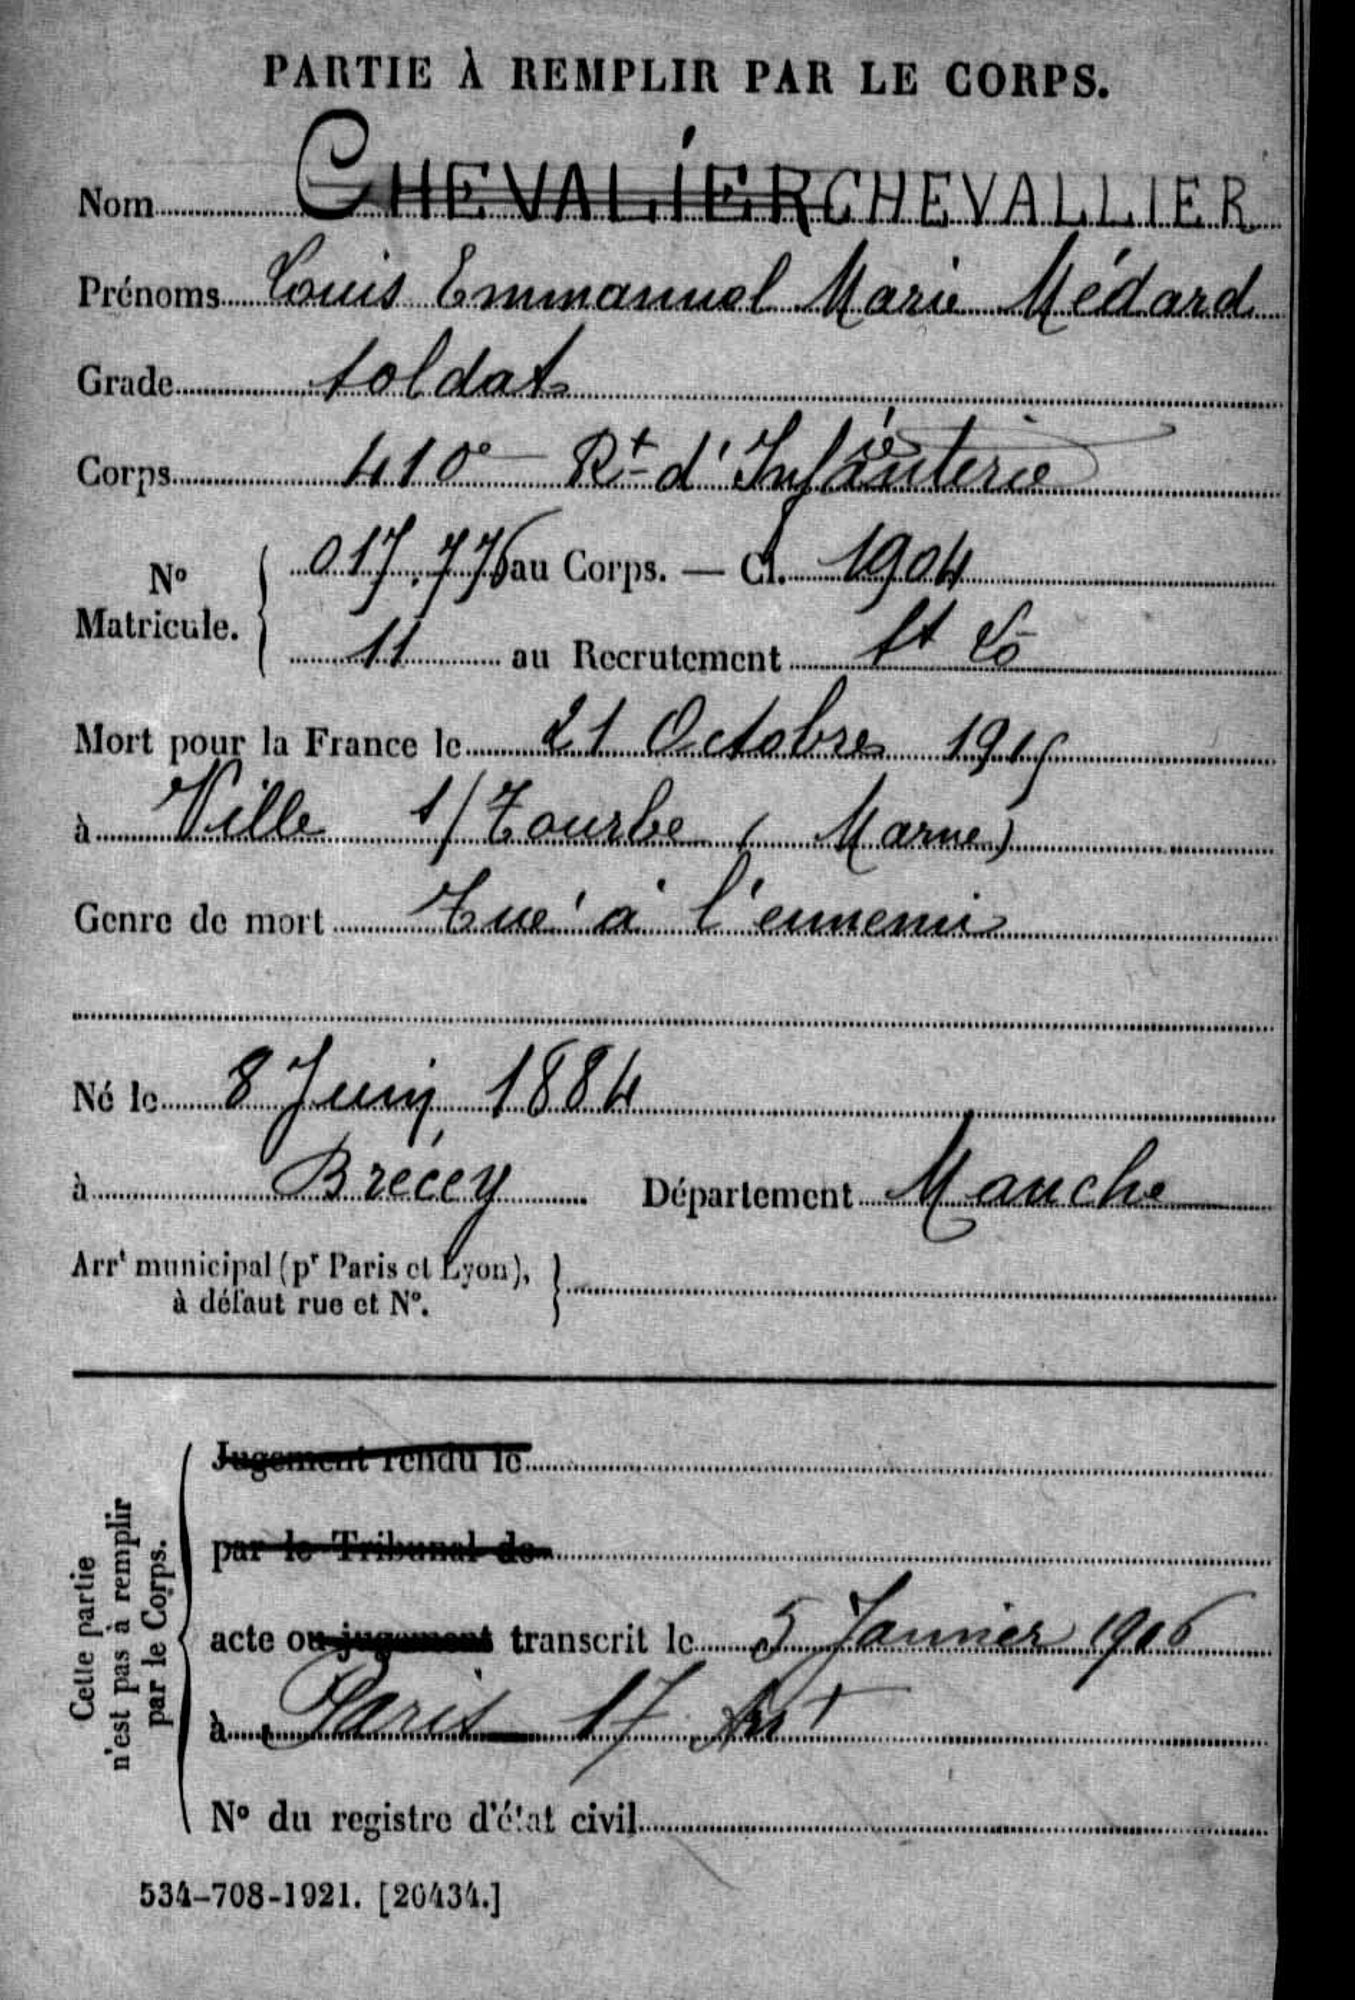 PARTIE À REMPLIR PAR LE CORPS.
Nom CHEVALIER CHEVALLIER
Prénoms Louis Emmanuel Marie Médard
Grade soldat
Corps 410e Rt d'Infanterie
No Matricule. 017.776 au Corps. — Cl. 1904
11 au Recrutement St Lô
Mort pour la France le 21 Octobre 1915
à Ville s/Tourbe (Marne)
Genre de mort Tué à l'ennemi
Né le 8 Juin 1884
à Brécey Département Manche
Arrt municipal (pr Paris et Lyon),
à défaut rue et No.
Cette partie
n'est pas à remplir
par le Corps.
Jugement rendu le
par le Tribunal de
acte ou jugement transcrit le 5 Janvier 1916
à Paris 17 Art
No du registre d'état civil
534-708-1921. [20434.]